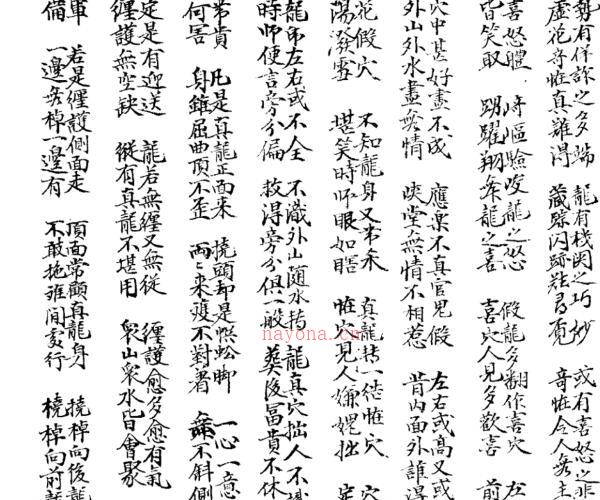 勢有佯詐之多端 龍有棧閃之巧妙 或有喜怒之非
虛花奇怪真難得 藏踪閃跡 尋覓 奇怪令人無主
喜怒 時 龍之怒 假龍多翻作喜穴 左
皆笑取 踴躍翔舞龍之喜 喜穴人見多歡喜 前
穴中甚好畫不成 應樂不真官鬼假 左右或高又或
外山外水盡無情 峽堂無情不相惹 背內面外誰得
花假穴 不知龍身又帶來 真龍 一結怪穴
堪笑時師眼如瞎 怪穴多見人嫌 拙 定
龍 左右或不全 不識外山隨水轉 龍真穴拙人不
時師便言旁分偏 救得旁分俱一般 葬後富貴不休
常貴 凡是真龍正面來 撓頭却是蜈蚣脚 一心一意
何害 身雖屈曲頂不歪 兩〻來護不對看 不斜側
定是有迎送 龍若無纏又無從 纏護愈多愈有氣
纏護無空缺 縱有真龍不堪用 衆山衆水皆會聚
軍 若是纏護側面走 頂面常顧真龍身 橈棹向後龍
備 一邊無棹一邊有 不敢 班間 行 橈棹向前龍
nayona.cn